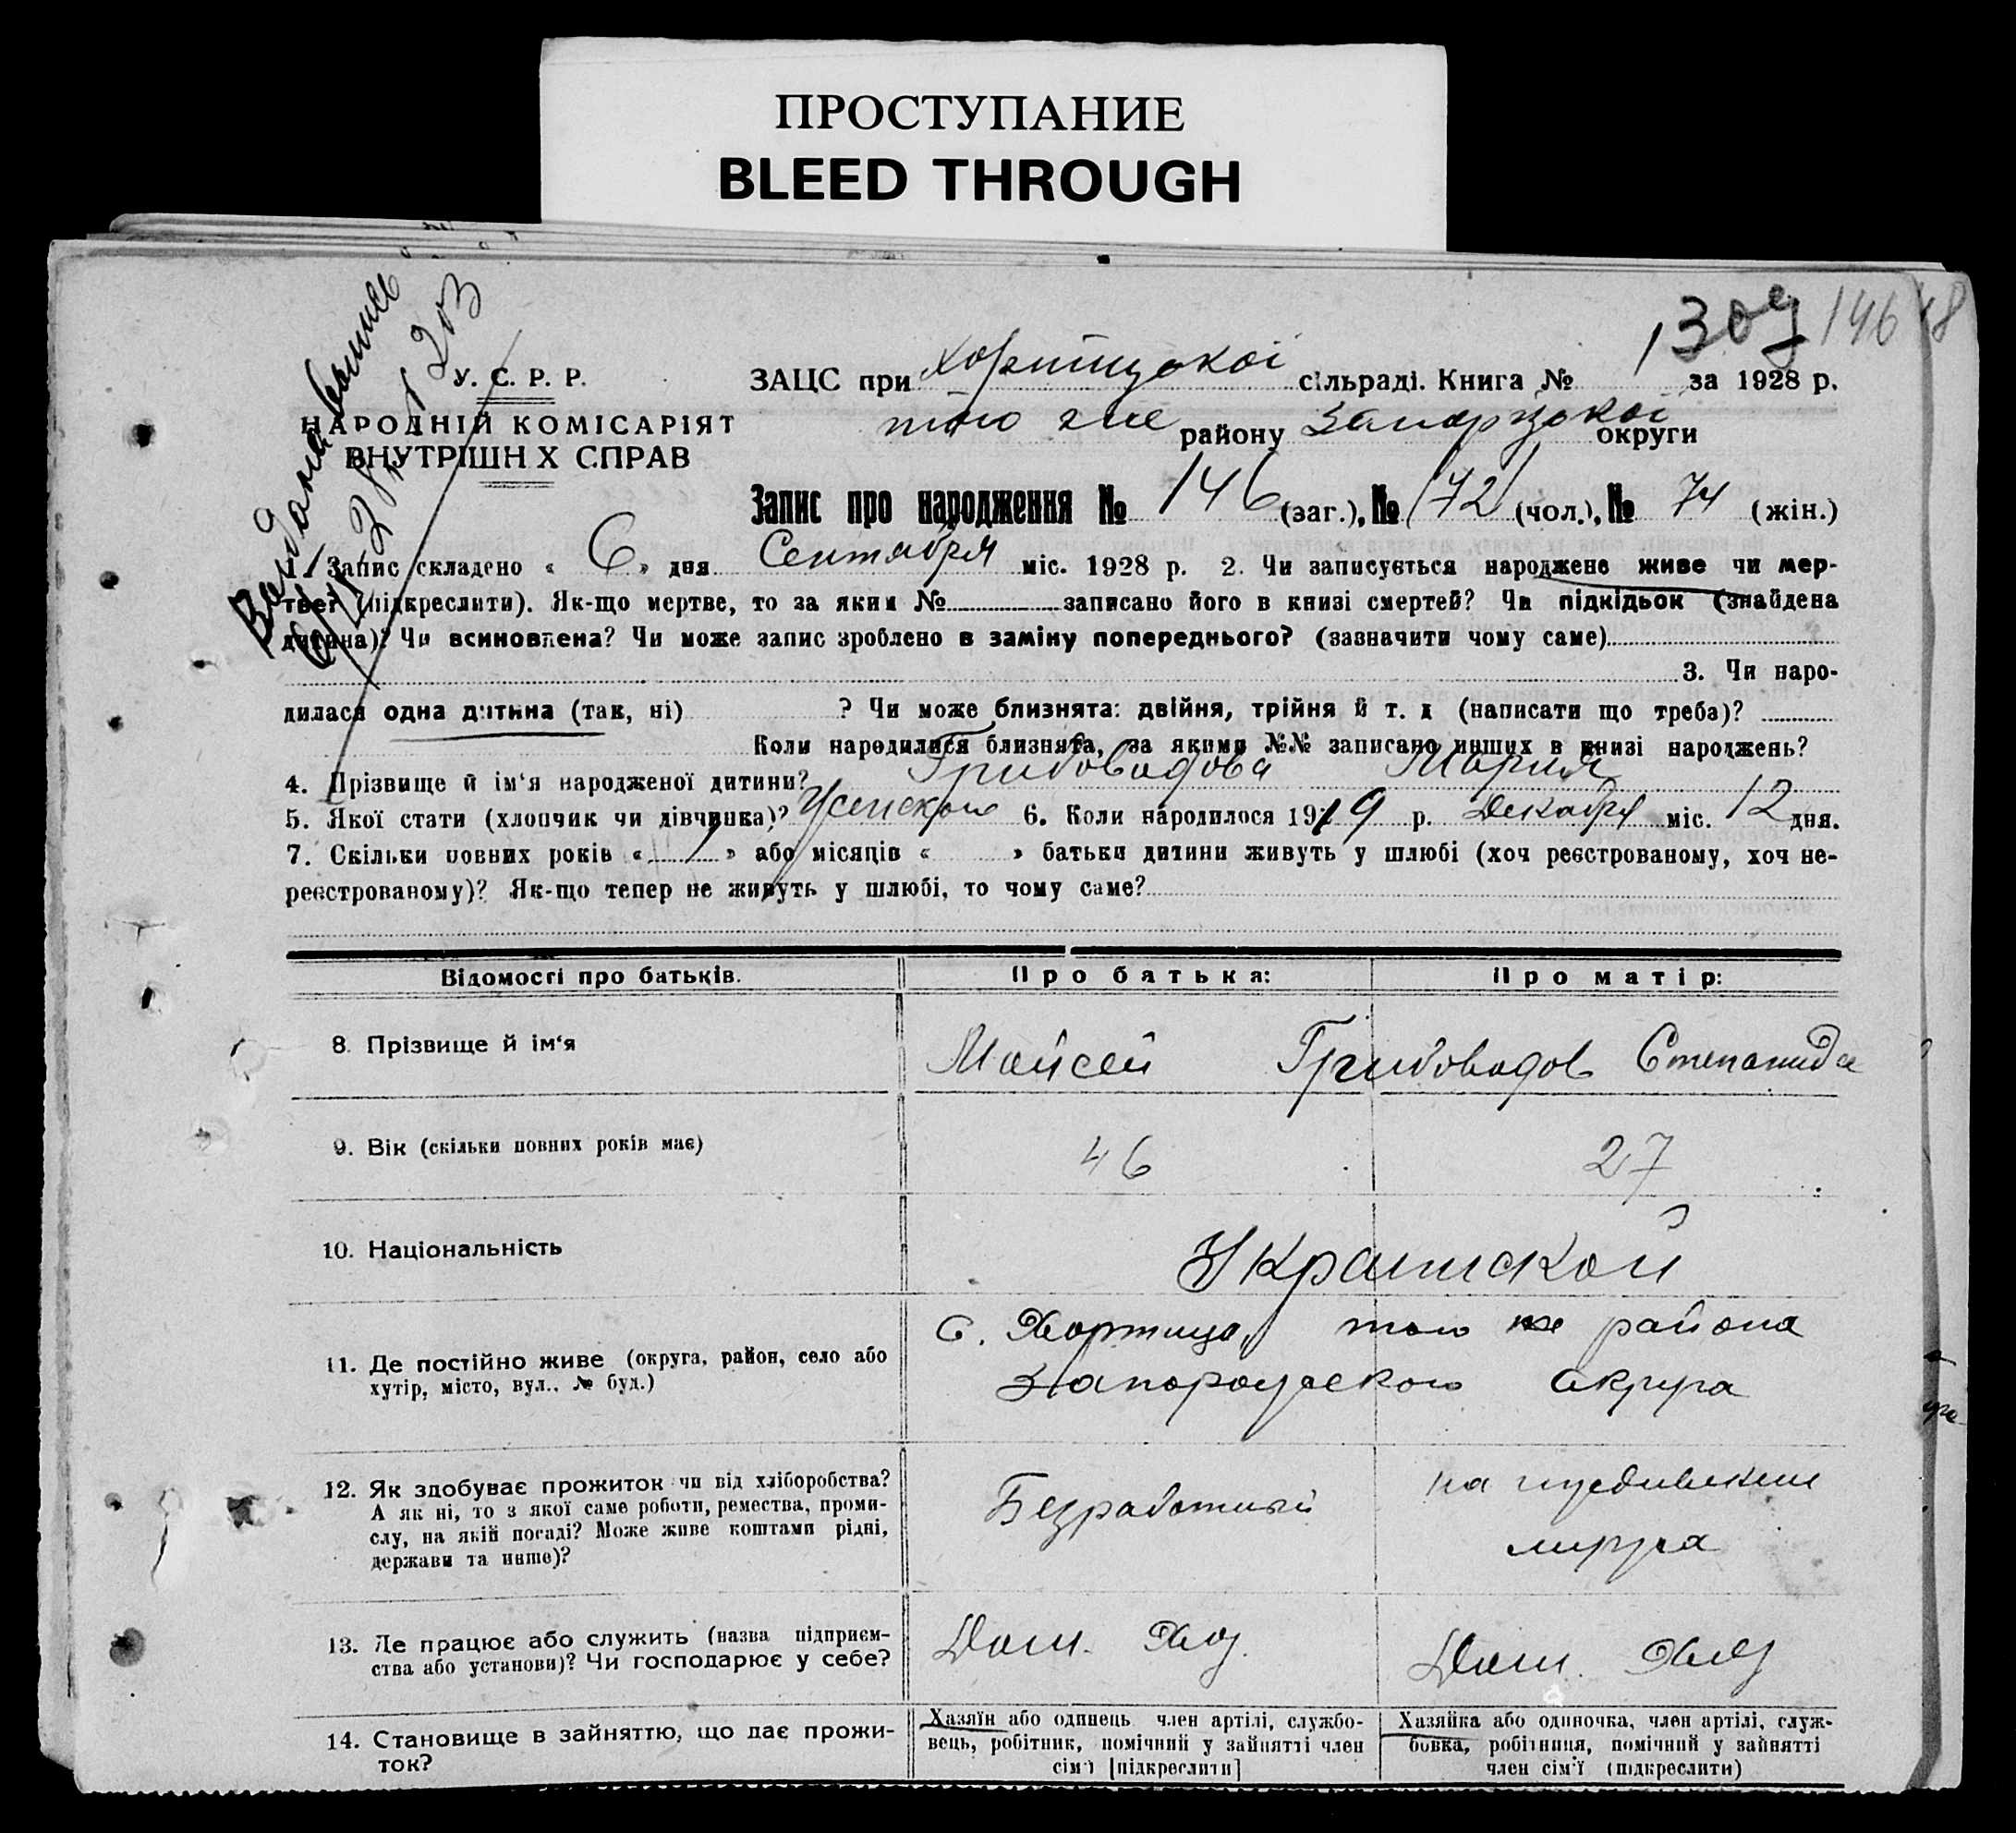 ПРОСТУПАНИЕ
BLEED THROUGH
309 146 18
У. С. Р. Р.
НАРОДНІЙ КОМІСАРІЯТ
ВНУТРІШН Х СПРАВ
ЗАЦС при Хортицокої сільраді. Книга № за 1928 р.
того же району Запорізокої округи
Запис про народження № 146 (заг.), № 72 (чол.), № 74 (жін.)
1. Запис складено « 6 » дня Сентября міс. 1928 р. 2. Чи записується народжене живе чи мер-
твет (підкреслити). Як-що мертве, то за яким № записано його в книзі смертей? Чи підкідьок (знайдена
дитина)? Чи всиновлена? Чи може запис зроблено в заміну попереднього? (зазначити чому саме)
3. Чи наро-
дилася одна дитина (так, ні) ? Чи може близнята: двійня, трійня й т. д (написати що треба)?
Коли народилися близнята, за якими №№ записано инших в книзі народжень?
4. Прізвище й ім'я народженої дитини? Грибовадова Мария
5. Якої стати (хлопчик чи дівчинка)? Женскою 6. Коли народилося 1919 р. Декабря міс. 12 дня.
7. Скільки повних років « » або місяців « » батьки дитини живуть у шлюбі (хоч реєстрованому, хоч не-
реєстрованому)? Як-що тепер не живуть у шлюбі, то чому саме?
Відомості про батьків. Про батька: Про матір:
8. Прізвище й ім'я Мойсей Грибовадов Степанида
9. Вік (скільки повних років має) 46 27
10. Національність Украинской
11. Де постійно живе (округа, район, село або
хутір, місто, вул.. № буд.)
С. Хортица, того же района
Запорожского округа
12. Як здобуває прожиток чи від хліборобства?
А як ні, то з якої саме роботи, ремества, проми-
слу, на якій посаді? Може живе коштами рідні,
держави та инше)?
Безработный
на иждивении
мужа
13. Де працює або служить (назва підприєм-
ства або установи)? Чи господарює у себе?
Дом. Хоз.
Дом. Хоз
14. Становище в зайняттю, що дає прожи-
ток?
Хазяїн або одинець член артілі, службо-
вець, робітник, помічний у зайнятті член
сім'ї [підкреслити]
Хазяйка або одиночка, член артілі, служ-
бовка, робітниця, помічний у зайнятті
член сім'ї (підкреслити)